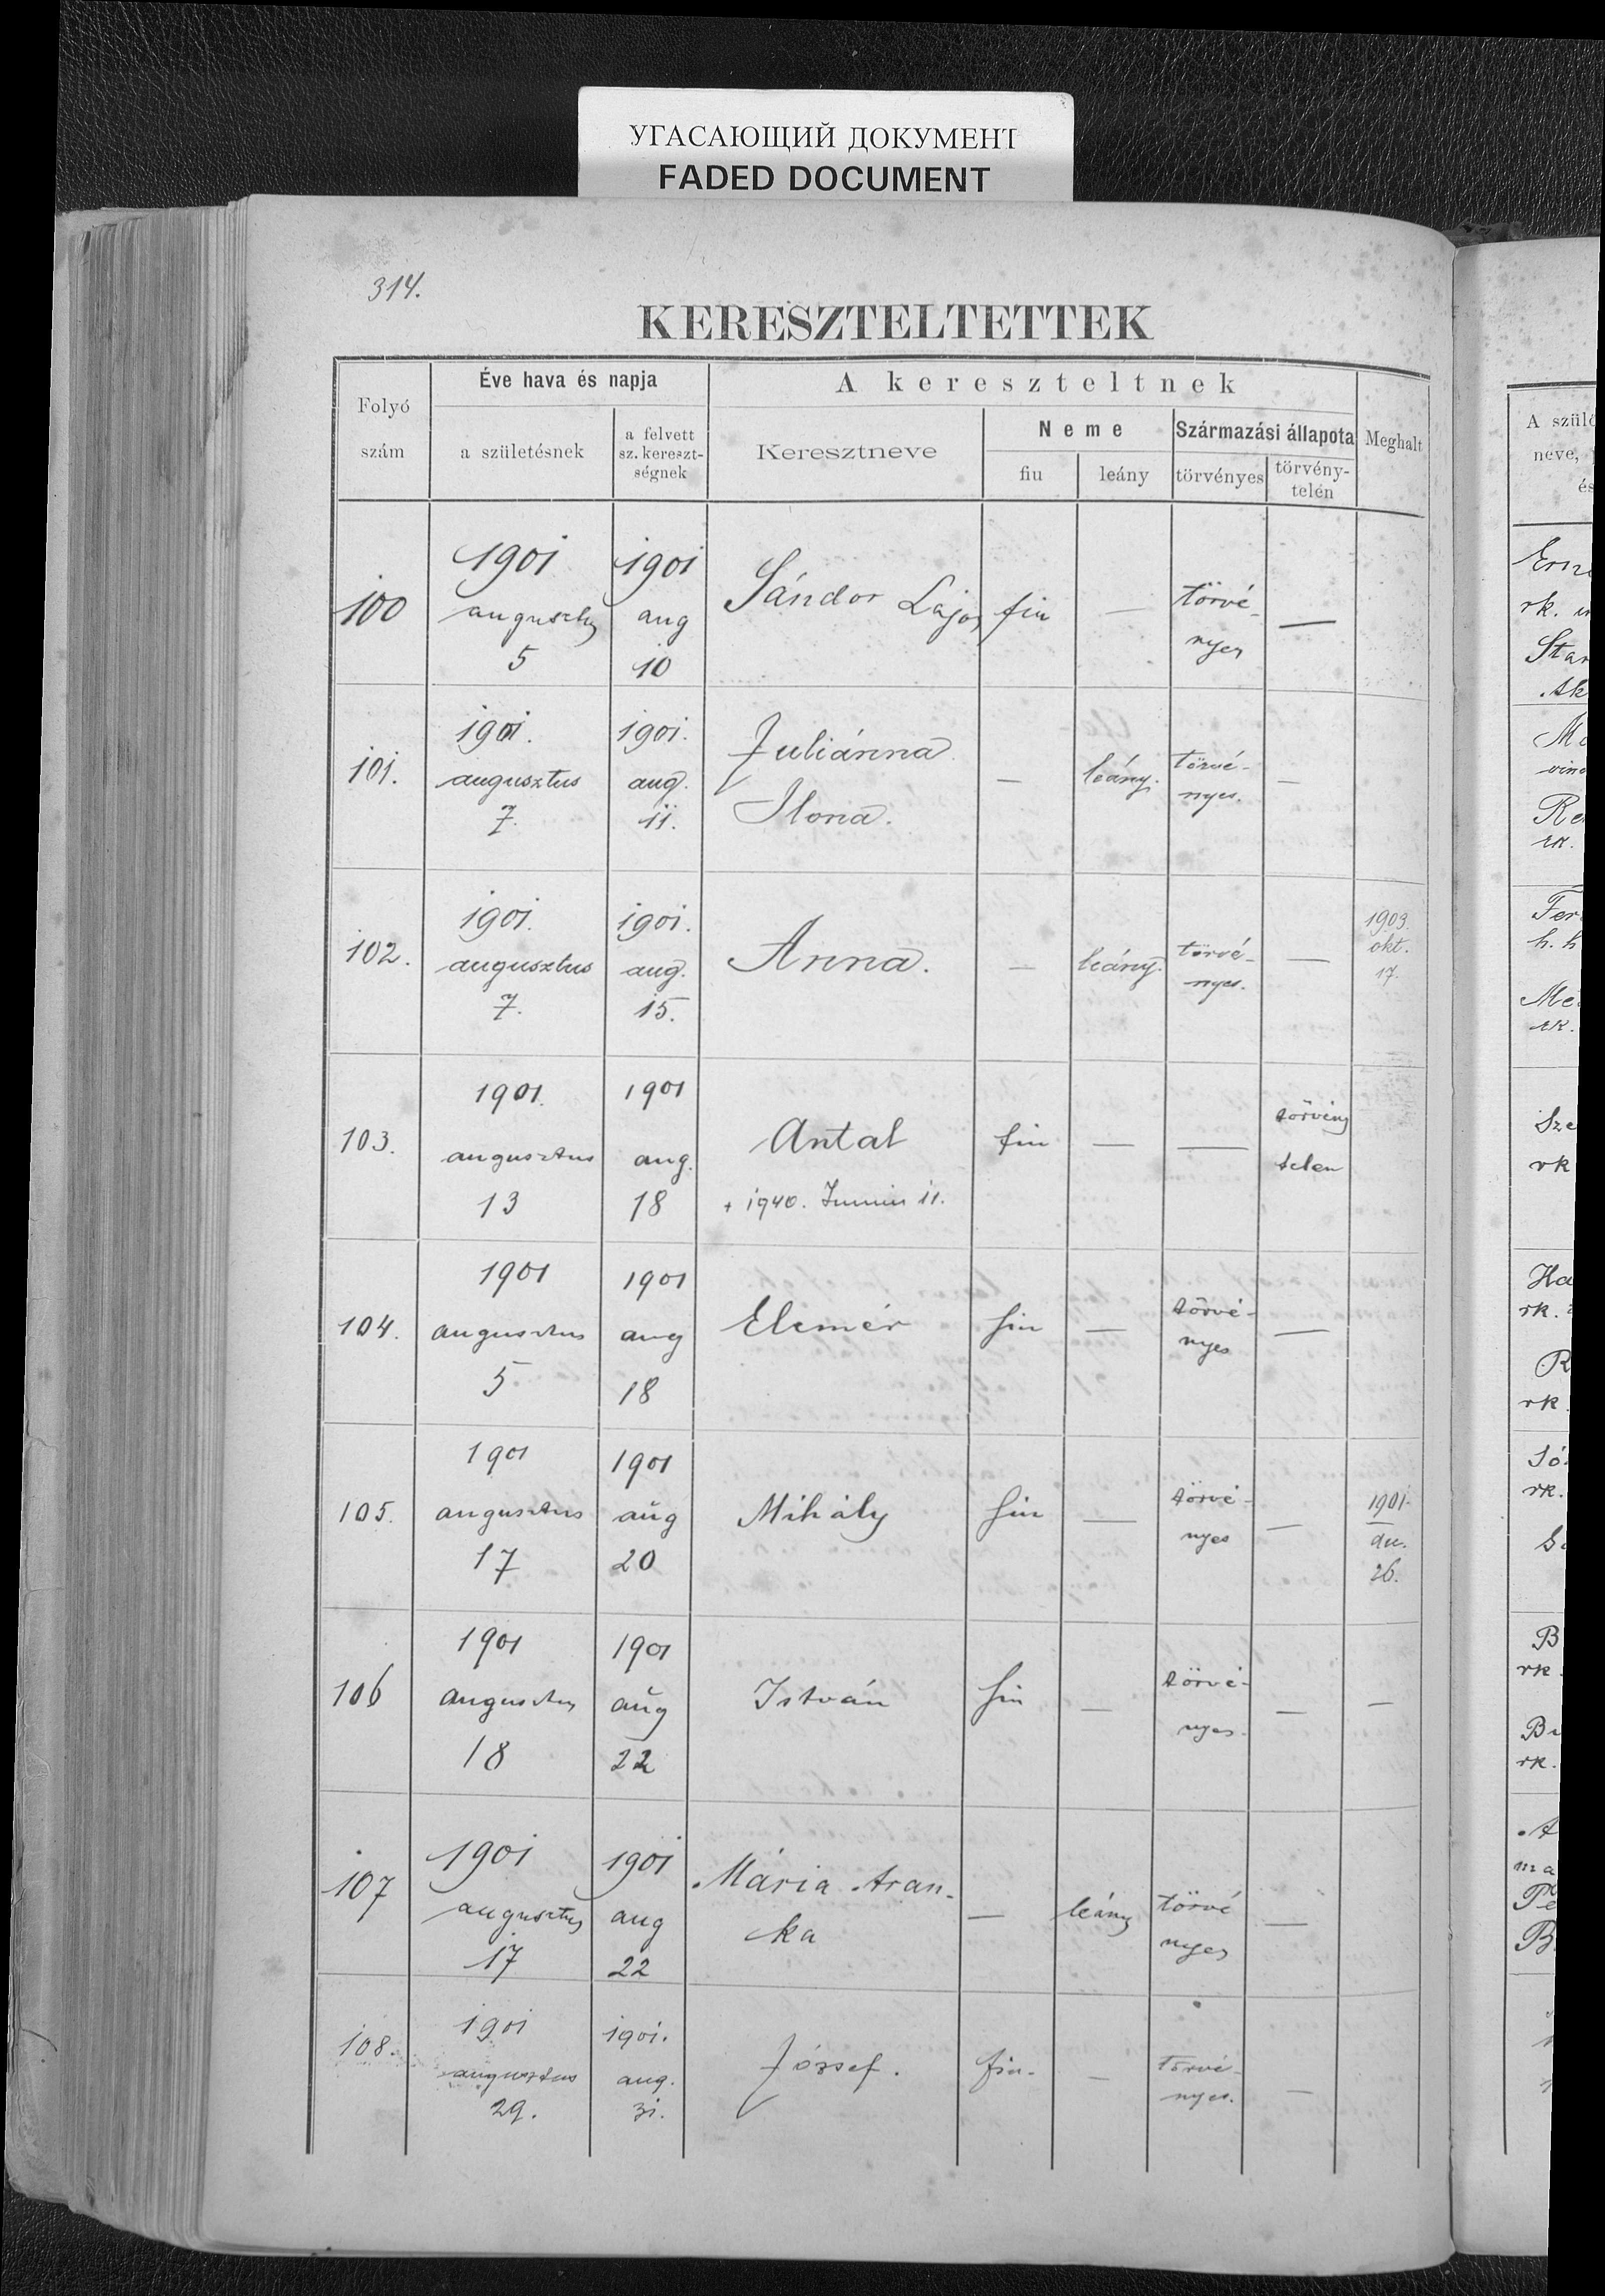 УГАСАЮЩИЙ ДОКУМЕНТ
FADED DOCUMENT
314.
KERESZTELTETTEK
Folyó szám
Éve hava és napja
a születésnek
a felvett sz. kereszt-ségnek
A kereszteltnek
Keresztneve
Neme
fiu
leány
Származási állapota
törvényes
törvény-telén
Meghalt
100 1901 augusztus 5 1901 aug 10 Sándor Lajos fiu — törvé-nyes —
101. 1901. augusztus 7. 1901. aug. 11. Juliánna Ilona. — leány. törvé-nyes. —
102. 1901. augusztus 7. 1901. aug. 15. Anna. — leány. törvé-nyes. — 1903. okt. 17.
103. 1901. augusztus 13 1901 aug. 18 Antal fiu — — törvény telen
+ 1940. Junius 11.
104. 1901 augusztus 5 1901 aug 18 Elemér fiu — törvé-nyes —
105. 1901 augusztus 17 1901 aug 20 Mihály fiu — törvé-nyes — 1901. 26.
106 1901 augusztus 18 1901 aug 22 István fiu — törvé-nyes. — —
107 1901 augusztus 17 1901 aug 22 Mária Aran-ka — leány törvé nyes —
108. 1901 augusztus 29. 1901. aug. 31. József. fiu. — törvé-nyes. —
A szülő
neve,
és
rk.
rk.
h. h
rk.
rk
rk.
rk
rk.
rk.
rk.